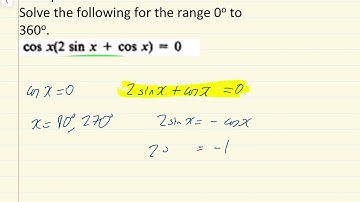 Solve the following for the range 0° to
360°.
cos x(2 sin x + cos x) = 0
cos x = 0
2 sin x + cos x = 0
x = 90°, 270°
2 sin x = - cos x
2 = -1